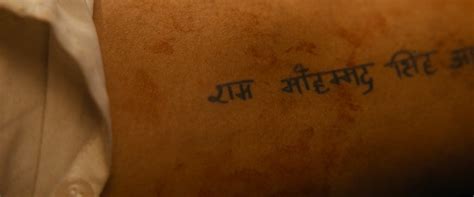 राम मोहम्मद सिंह आ